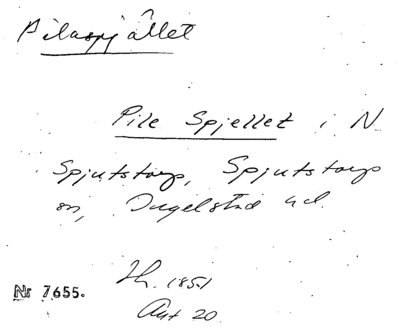 Pilaspjället
Pile Spjellet i N
Spjutstorp, Spjutstorps
sn, Ingelstad hd.
1851
Akt 20
Nr 7655.